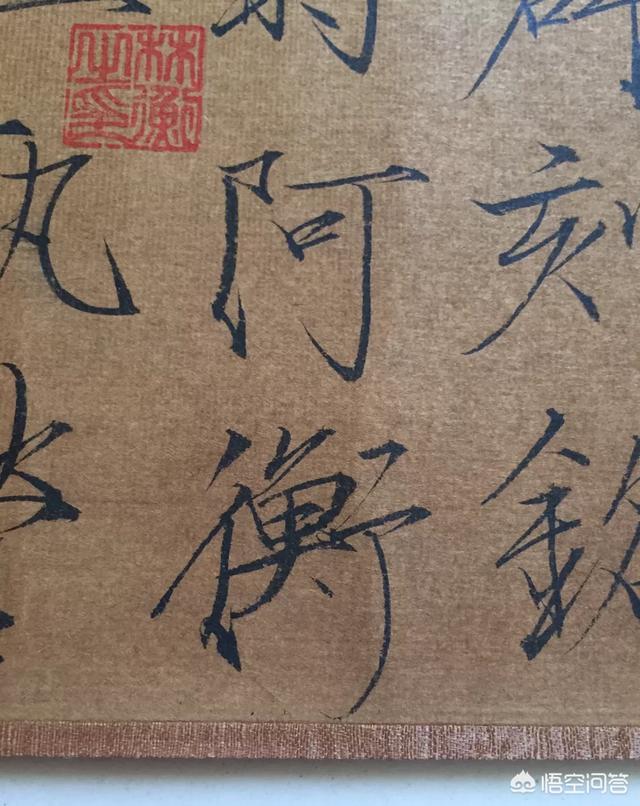 刻銘
阿衡
林衡之印
悟空问答